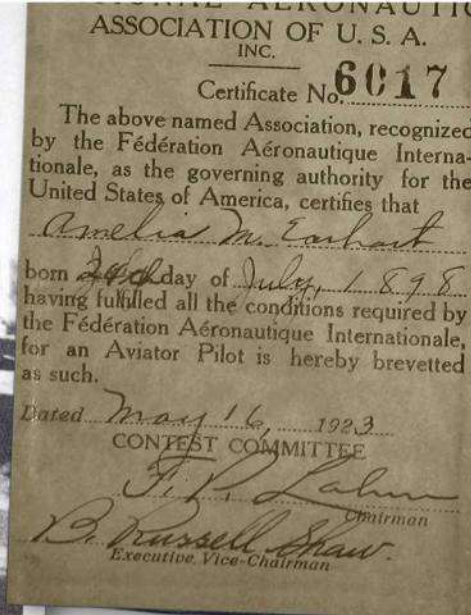 AERONAUTI
ASSOCIATION OF U. S. A.
INC.
Certificate No. 6017
The above named Association, recognized
by the Fédération Aéronautique Interna-
tionale, as the governing authority for the
United States of America, certifies that
Amelia M. Earhart
born 24th day of July, 1898
having fulfilled all the conditions required by
the Fédération Aéronautique Internationale,
for an Aviator Pilot is hereby brevetted
as such.
Dated May 16, 1923
CONTEST COMMITTEE
F. P. Lahm
Chairman
B. Russell Shaw.
Executive Vice-Chairman